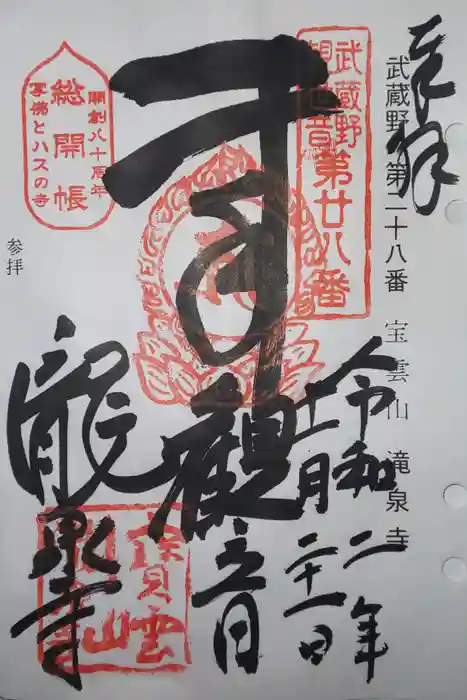 奉拝
武蔵野 第二十八番 宝雲山 滝泉寺
令和二年
十一月
二十一日
武蔵野
観世音
第廿八番
観音
開創八十周年
総開帳
寝佛とハスの寺
参拝
龍泉寺
寳雲山